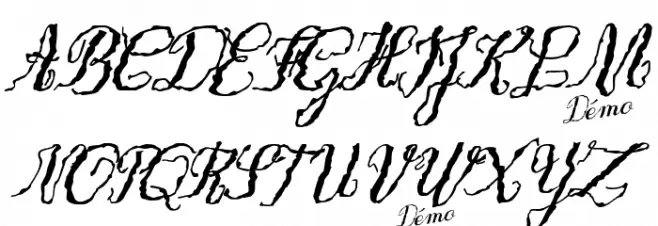 ABCDEFGHIJKLM
Démo
NOPQRSTUVWXYZ
Démo